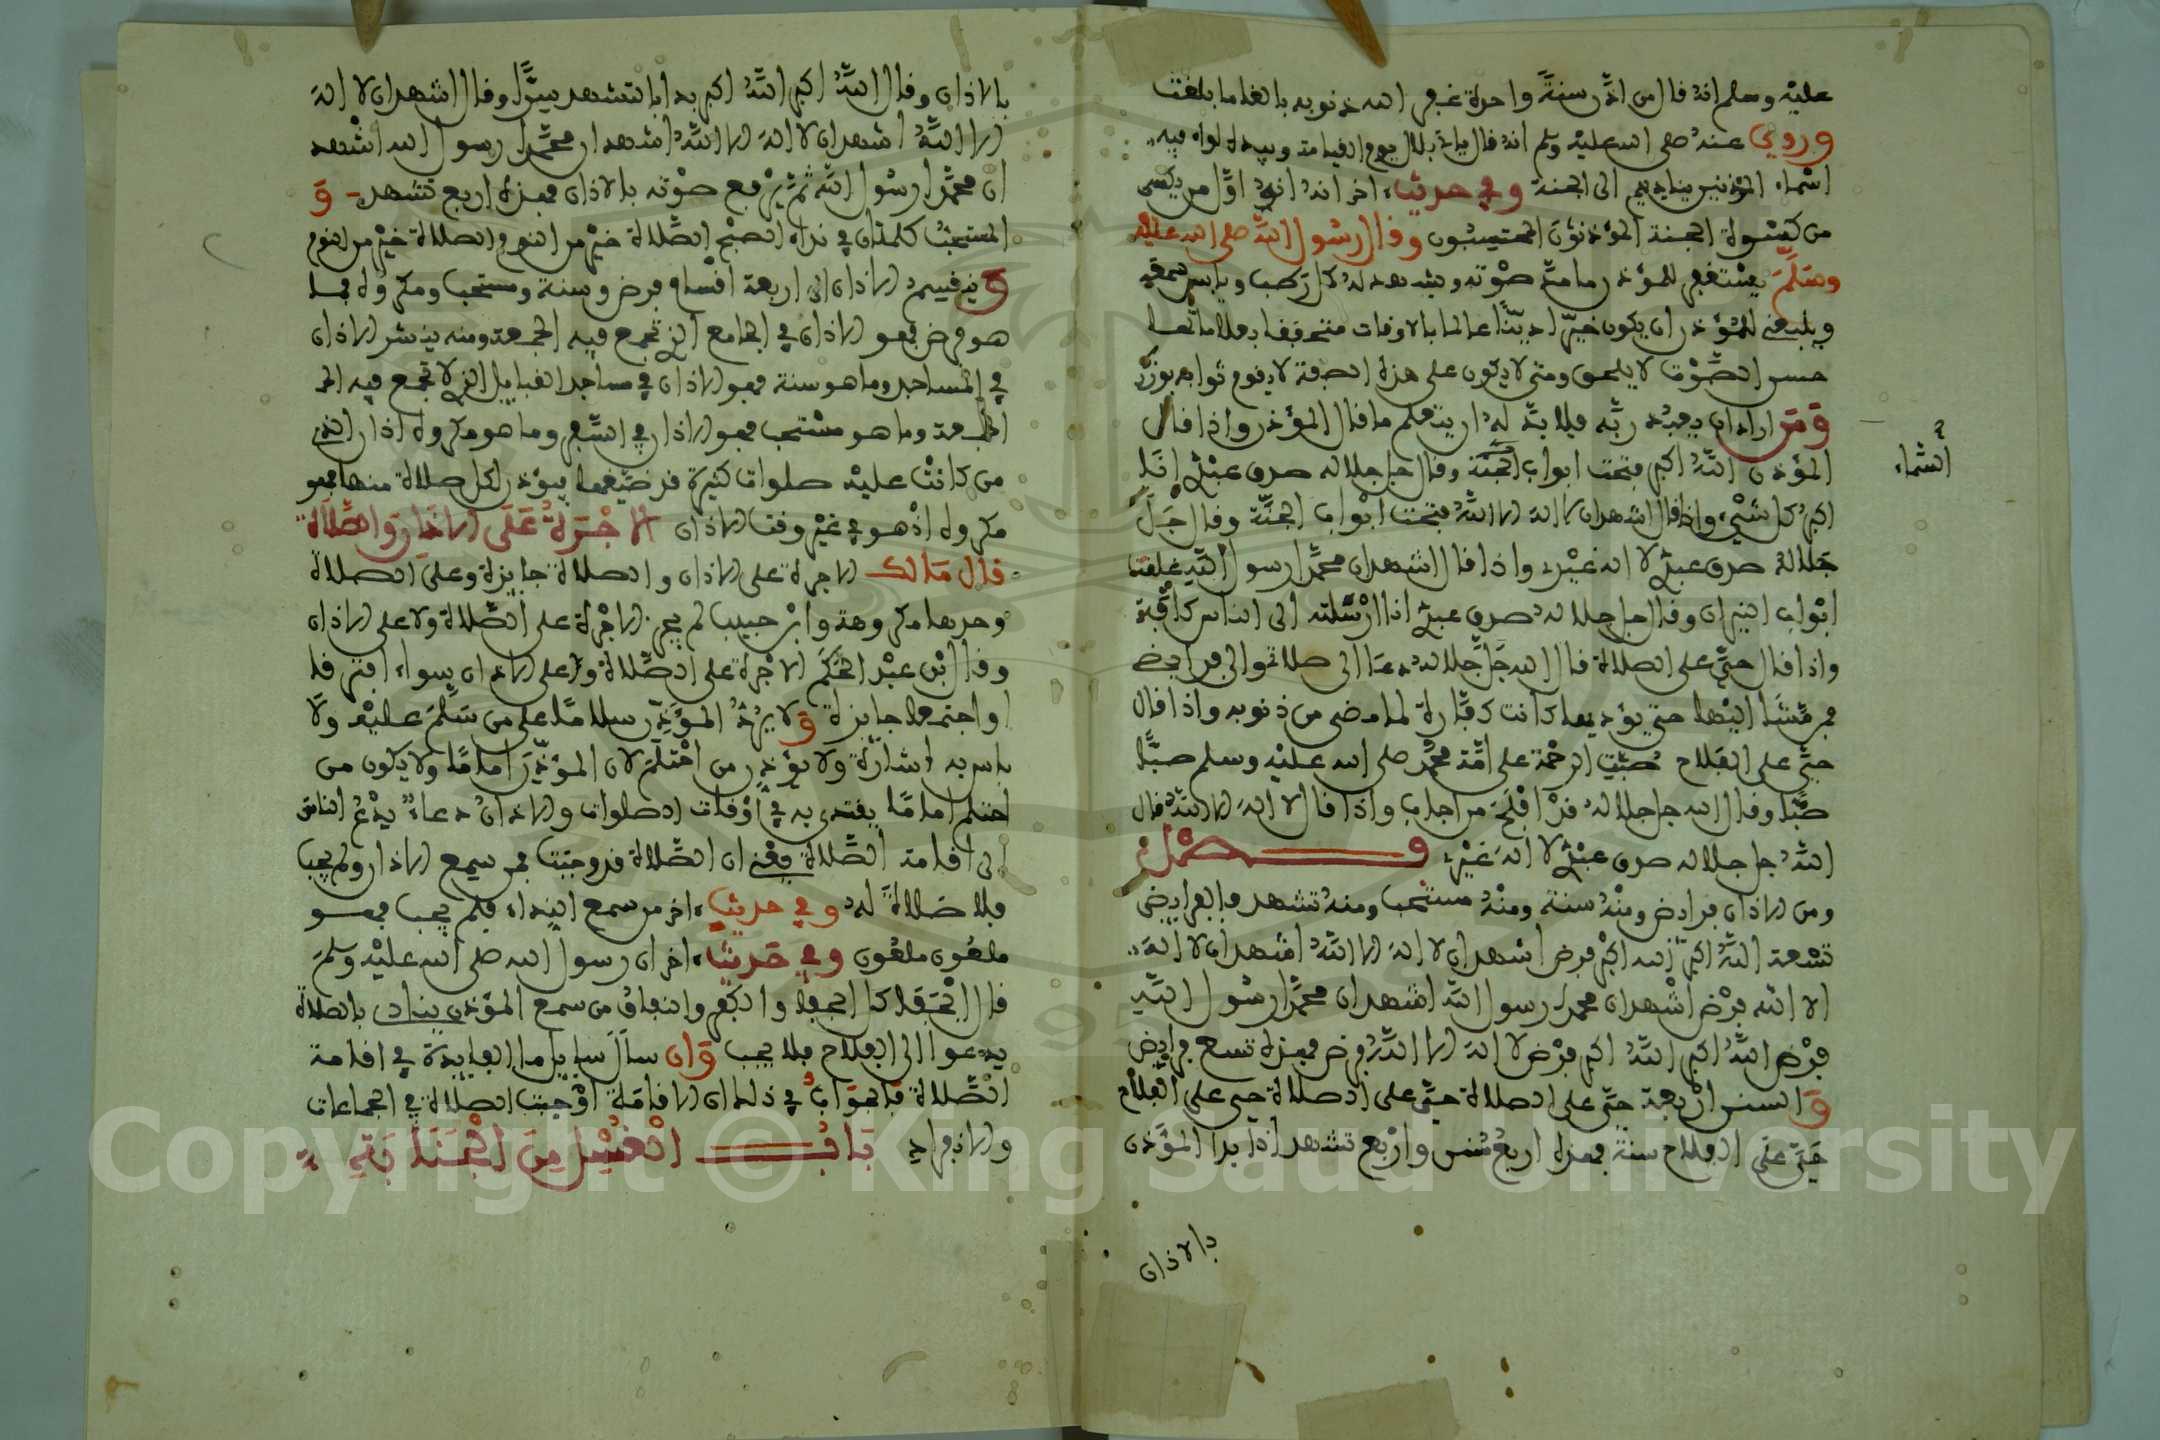 عليه وسلم انه قال من اذن سنة واحدة غفر الله ذنوبه بالغا ما بلغت
وروي عنه صلى الله عليه وسلم انه قال ياتي بلال يوم القيامة وبيده لواء فيه
اسماء المؤذنين يناديهم الى الجنة وفي حديث اخر انه اول من يكسى
من كسوة الجنة المؤذنون المحتسبون وقال رسول الله صلى الله عليه
وسلم يستغفر للمؤذن ما مد صوته ويشهد له كل رطب ويابس سمعه
وينبغي للمؤذن ان يكون خيرا دينا عالما بالاوقات متحققا بعلاماتها
حسن الصوت لا يلحن ومتى لا يكون على هذه الصفة لا يقوم ثوابه بوزره
ومن اراد ان يعبد ربه فلا بد له ان يتعلم ما قال المؤذن واذا قال
المؤذن الله اكبر فتحت ابواب الجنة وقال جل جلاله صدق عبدي انا
السماء
اكبر كل شيء واذا قال اشهد ان لا اله الا الله فتحت ابواب الجنة وقال جل
جلاله صدق عبدي لا اله غيري واذا قال اشهد ان محمدا رسول الله غلقت
ابواب النيران وقال جل جلاله صدق عبدي انا ارسلته الى الناس كافة
واذا قال حي على الصلاة قال الله جل جلاله دعا الى صلاتي والى فرايضي
فمن مشا اليها حتى يؤديها كانت كفارة لما مضى من ذنوبه واذا قال
حي على الفلاح صبت الرحمة على امة محمد صلى الله عليه وسلم صبا
صبا وقال الله جل جلاله قد افلح من اجاب واذا قال لا اله الا الله قال
الله جل جلاله صدق عبدي لا اله غيري فصل
ومن الاذان فرايض ومنه سنة ومنه مستحب ومنه تشهد فالفرايض
تسعة الله اكبر الله اكبر فرض اشهد ان لا اله الا الله اشهد ان لا اله
الا الله فرض اشهد ان محمدا رسول الله اشهد ان محمدا رسول الله
فرض الله اكبر الله اكبر فرض لا اله الا الله فرض فهذه تسع فرايض
والسنن اربعة حي على الصلاة حي على الصلاة حي على الفلاح
حي على الفلاح سنة فهذه اربع سنن واربع تشهد اذا بدا المؤذن
بالاذان
بالاذان وقال الله اكبر الله اكبر بدا بالتشهد سرا وقال اشهد ان لا اله
الا الله اشهد ان لا اله الا الله اشهد ان محمدا رسول الله اشهد
ان محمدا رسول الله ثم يرفع صوته بالاذان فهذه اربع تشهد و
المستحب كلمتان في نداء الصبح الصلاة خير من النوم الصلاة خير من النوم
وينقسم الاذان الى اربعة اقسام فرض وسنة ومستحب ومكروه فما
هو فرض فهو الاذان في الجامع الذي تجمع فيه الجمعة ومنه ينشر الاذان
في المساجد وما هو سنة فهو الاذان في مساجد القبايل الذي لا تجمع فيه الج
الجمعة وما هو مستحب فهو الاذان في السفر وما هو مكروه اذان الذي
من كانت عليه صلوات كثيرة فرضيعها فيؤذن لكل صلاة منها فهو
مكروه اذ هو في غير وقت الاذان الاجرة على الاذان والصلاة
قال مالك الاجرة على الاذان والصلاة جايزة وعلى الصلاة
وحدها مكروهة وابن حبيب لم يجز الاجرة على الصلاة ولا على الاذان
وقال ابن عبد الحكم الاجرة على الصلاة وعلى الاذان سواء افترقا
او اجتمعا جايزة ولا يرد المؤذن سلاما على من سلم عليه ولا
باس به اشارة ولا يؤذن من احتلم لان المؤذن اماما ولا يكون من
احتلم اماما يقتدى به في اوقات الصلوات والاذان دعاء يدع الناس
الى اقامة الصلاة يعني ان الصلاة قد وجبت فمن سمع الاذان ولم يجب
فلا صلاة له وفي حديث اخر من سمع النداء فلم يجب فهو
ملعون ملعون وفي حديث اخر ان رسول الله صلى الله عليه وسلم
قال الجفا كل الجفا والكفر والنفاق من سمع المؤذن ينادي بالصلاة
يدعوا الى الفلاح فلا يجب وان سال سايل ما الفايدة في اقامة
الصلاة فالجواب في ذلك ان الاقامة اوجبت الصلاة في الجماعات
والانفراد باب الغسل من الجنابة
Copyright © King Saud University